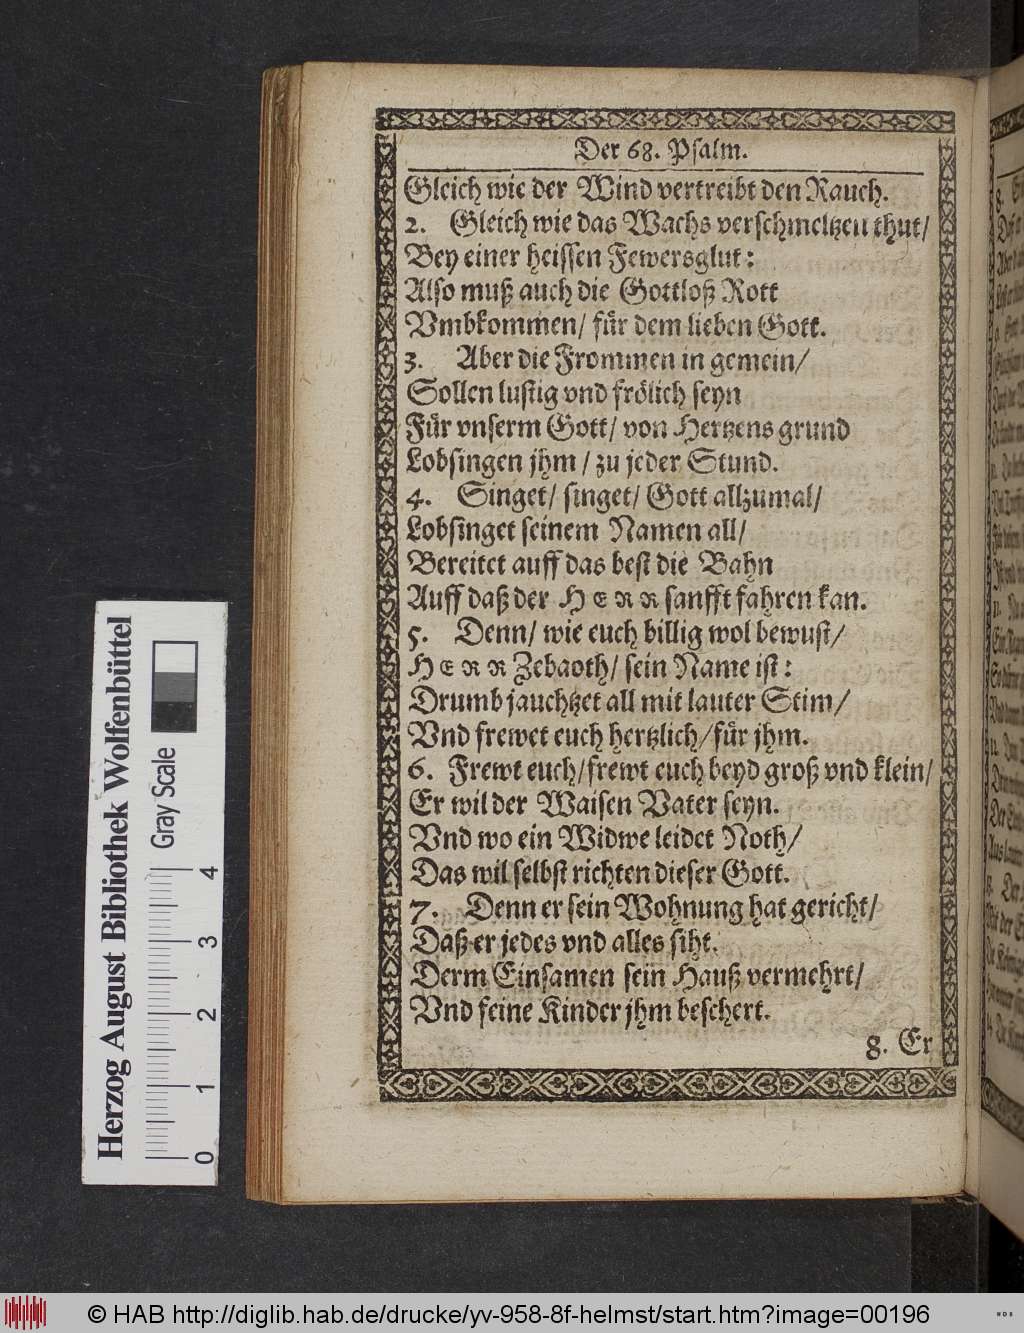 Der 68. Psalm.
Gleich wie der Wind vertreibt den Rauch.
2. Gleich wie das Wachs verschmeltzen thut/
Bey einer heissen Fewersglut:
Also muß auch die Gottloß Rott
Vmbkommen/ für dem lieben Gott.
3. Aber die Frommen in gemein/
Sollen lustig vnd frölich seyn
Für vnserm Gott/ von Hertzens grund
Lobsingen jhm/ zu jeder Stund.
4. Singet/ singet/ Gott allzumal/
Lobsinget seinem Namen all/
Bereitet auff das best die Bahn
Auff daß der HERR sanfft fahren kan.
5. Denn/ wie euch billig wol bewust/
HERR Zebaoth/ sein Name ist:
Drumb jauchtzet all mit lauter Stim/
Vnd frewet euch hertzlich/ für jhm.
6. Frewt euch/ frewt euch beyd groß vnd klein/
Er wil der Waisen Vater seyn.
Vnd wo ein Widwe leidet Noth/
Das wil selbst richten dieser Gott.
7. Denn er sein Wohnung hat gericht/
Daß er jedes vnd alles siht.
Derm Einsamen sein Hauß vermehrt/
Vnd seine Kinder jhm beschert.
8. Er
Herzog August Bibliothek Wolfenbüttel
Gray Scale
0 1 2 3 4
© HAB http://diglib.hab.de/drucke/yv-958-8f-helmst/start.htm?image=00196